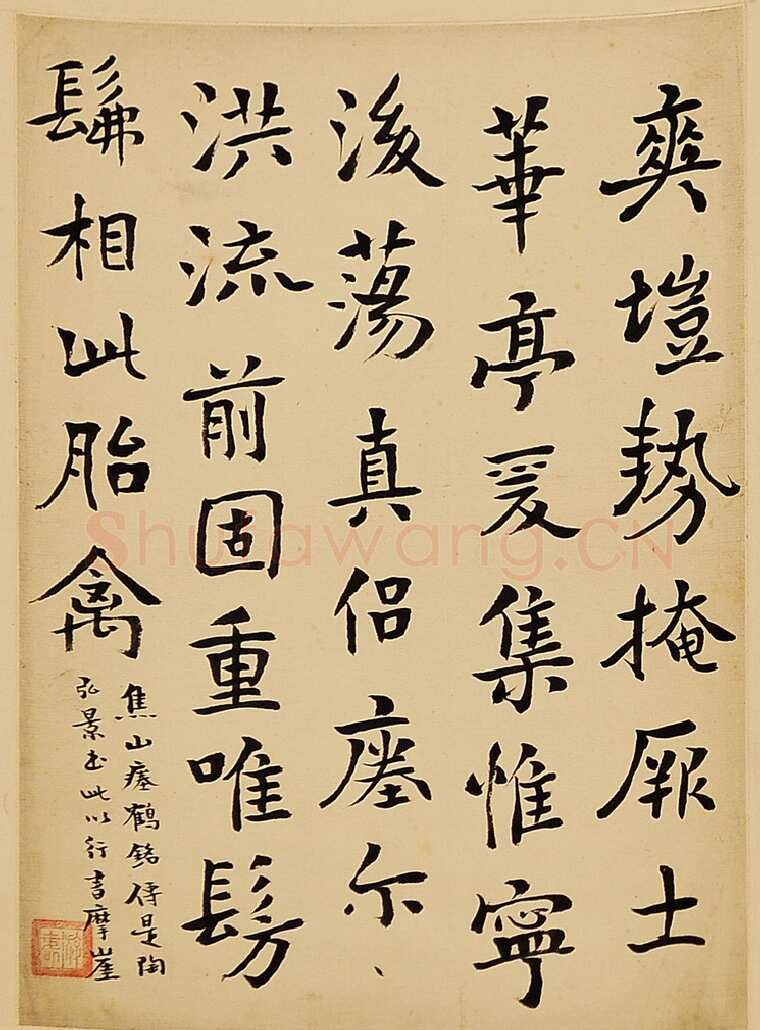 爽塏勢掩厥土
華亭爰集惟寧
後蕩真侶瘞尔、
洪流前固重唯髣
髴相此胎禽
焦山瘞鶴銘傳是陶
弘景书此以行書摩崖
Shufawang.CN